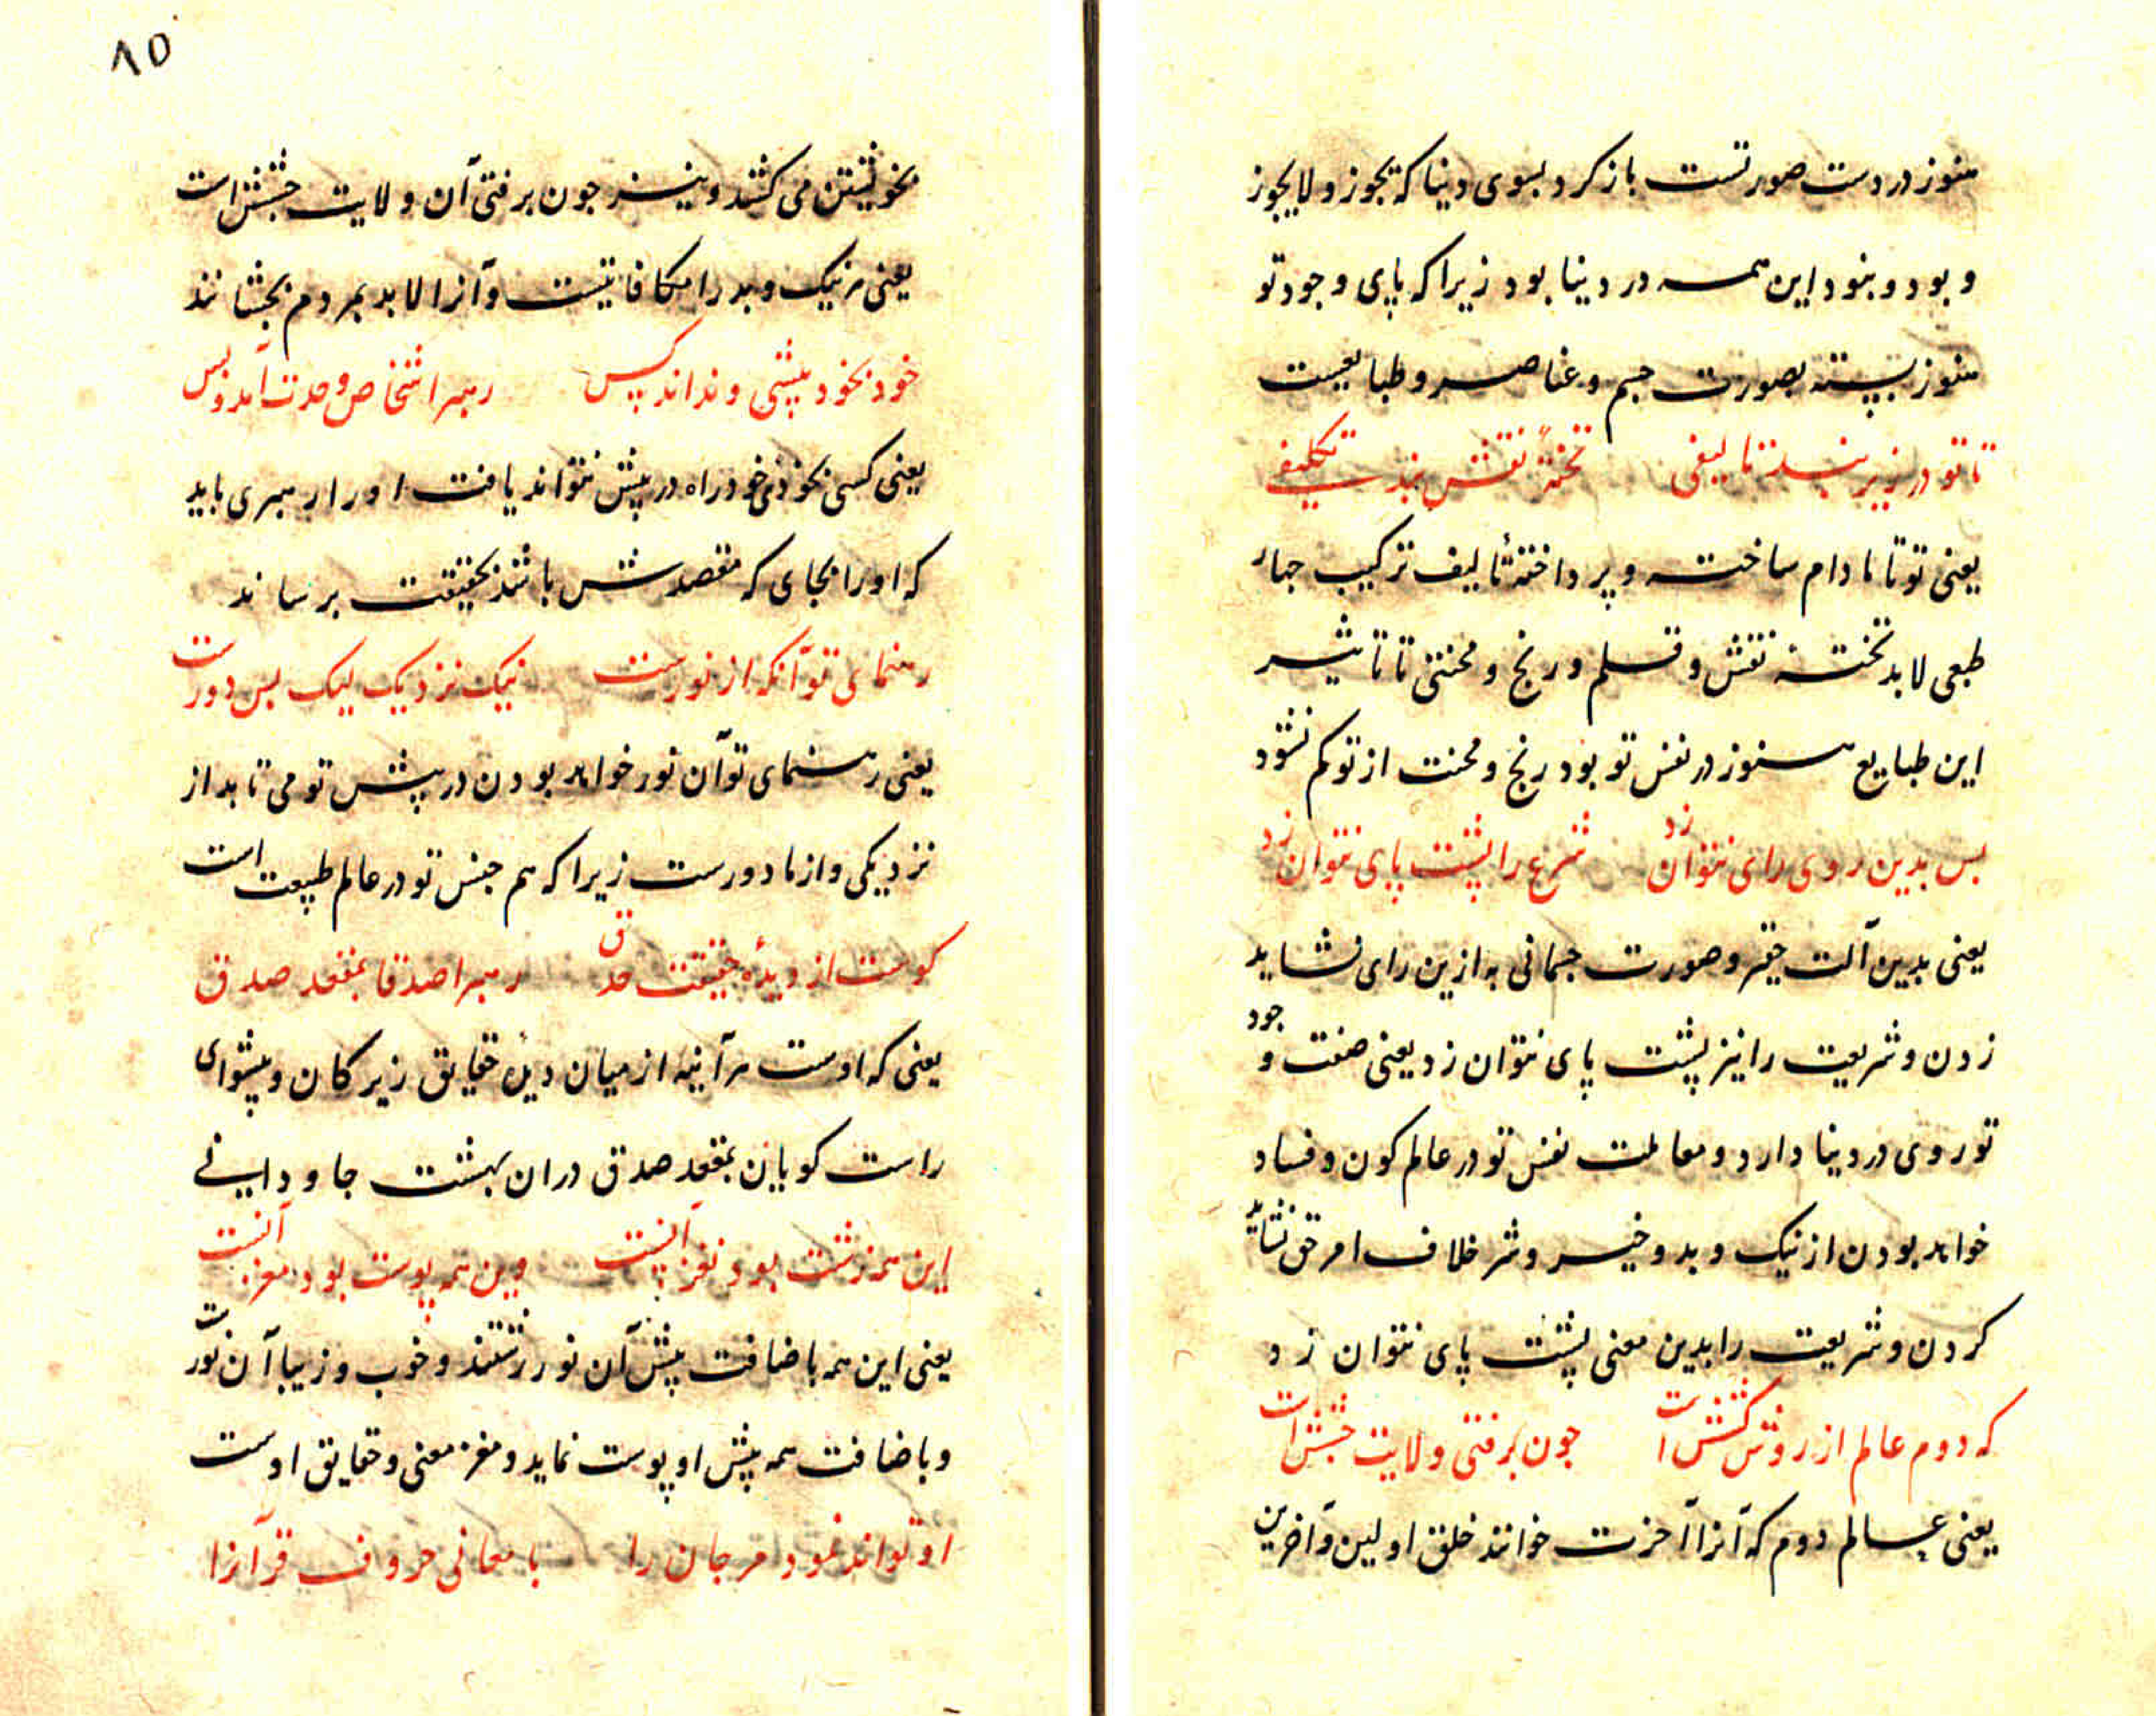 هنوز در دست صورتست باز کرد بسوی دینا که یجوز و لایجوز
و بود و نبود این همه در دینا بود زیرا که پای وجود تو
هنوز بسته بصورت جسم و عناصر و طبایعست
تا تو در زیر بند تالیفی تختهٔ نقش بند تکلیفی
یعنی تو تا مادام ساخته و پرداختهٔ تالیف ترکیب چهار
طبعی لابد تخته نقش و قلم و رنج و محنتی تا تاثیر
این طبایع هنوز در نفس تو بود رنج و محنت از تو کم نشود
بس بدین روی رای نتوان زد شرع را پشت پای نتوان زد
یعنی بدین آلت حقیر و صورت جسمانی به ازین رای نشاید
زدن و شریعت را نیز پشت پای نتوان زد یعنی صنعت وجود
تو روی در دینا دارد و معاملت نفس تو در عالم کون و فساد
خواهد بودن از نیک و بد و خیر و شر خلاف امر حق نشاید
کردن و شریعت را بدین معنی پشت پای نتوان زد
که دوم عالم از روش کشش است جون برفتی ولایت جشش است
یعنی عالم دوم که آنرا آخرت خوانند خلق اولین و آخرین
۸۵
بخویشتن می کشد و نیز جون برفتی آن ولایت جشش است
یعنی هر نیک و بد را مکافاتیست و آنرا لابد بمردم بچشانند
خود بخود پیشی و نداند پس رهبر اشخاص وحدت آمد و بس
یعنی کسی بخودی خود راه در پیش نتواند یافت او را رهبری باید
که او را بجای که مقصدش باشد بحقیقت برساند
رهنمای تو آنکه از نورست نیک نزدیک لیک بس دورست
یعنی رهنمای تو آن نور خواهد بودن در پیش تو می تابد از
نزدیکی و از ما دورست زیرا که هم جنس تو در عالم طبیعت است
کوست از دیدهٔ حقیقت حدق رهبر اصدقا بمقعد صدق
یعنی که اوست هر آینه از میان دیده حقایق زیرکان و پیشوای
راست کویان بمقعد صدق دران بهشت جاودانی
این همه زشت بود نغز آنست وین همه پوست بود مغز آنست
یعنی این همه باضافت پیش آن نور زشتند و خوب و زیبا آن نورست
و باضافت همه پیش او پوست نماید و مغز معنی و حقایق اوست
او تواند نمود مر جان را با معانی حروف قرآنرا